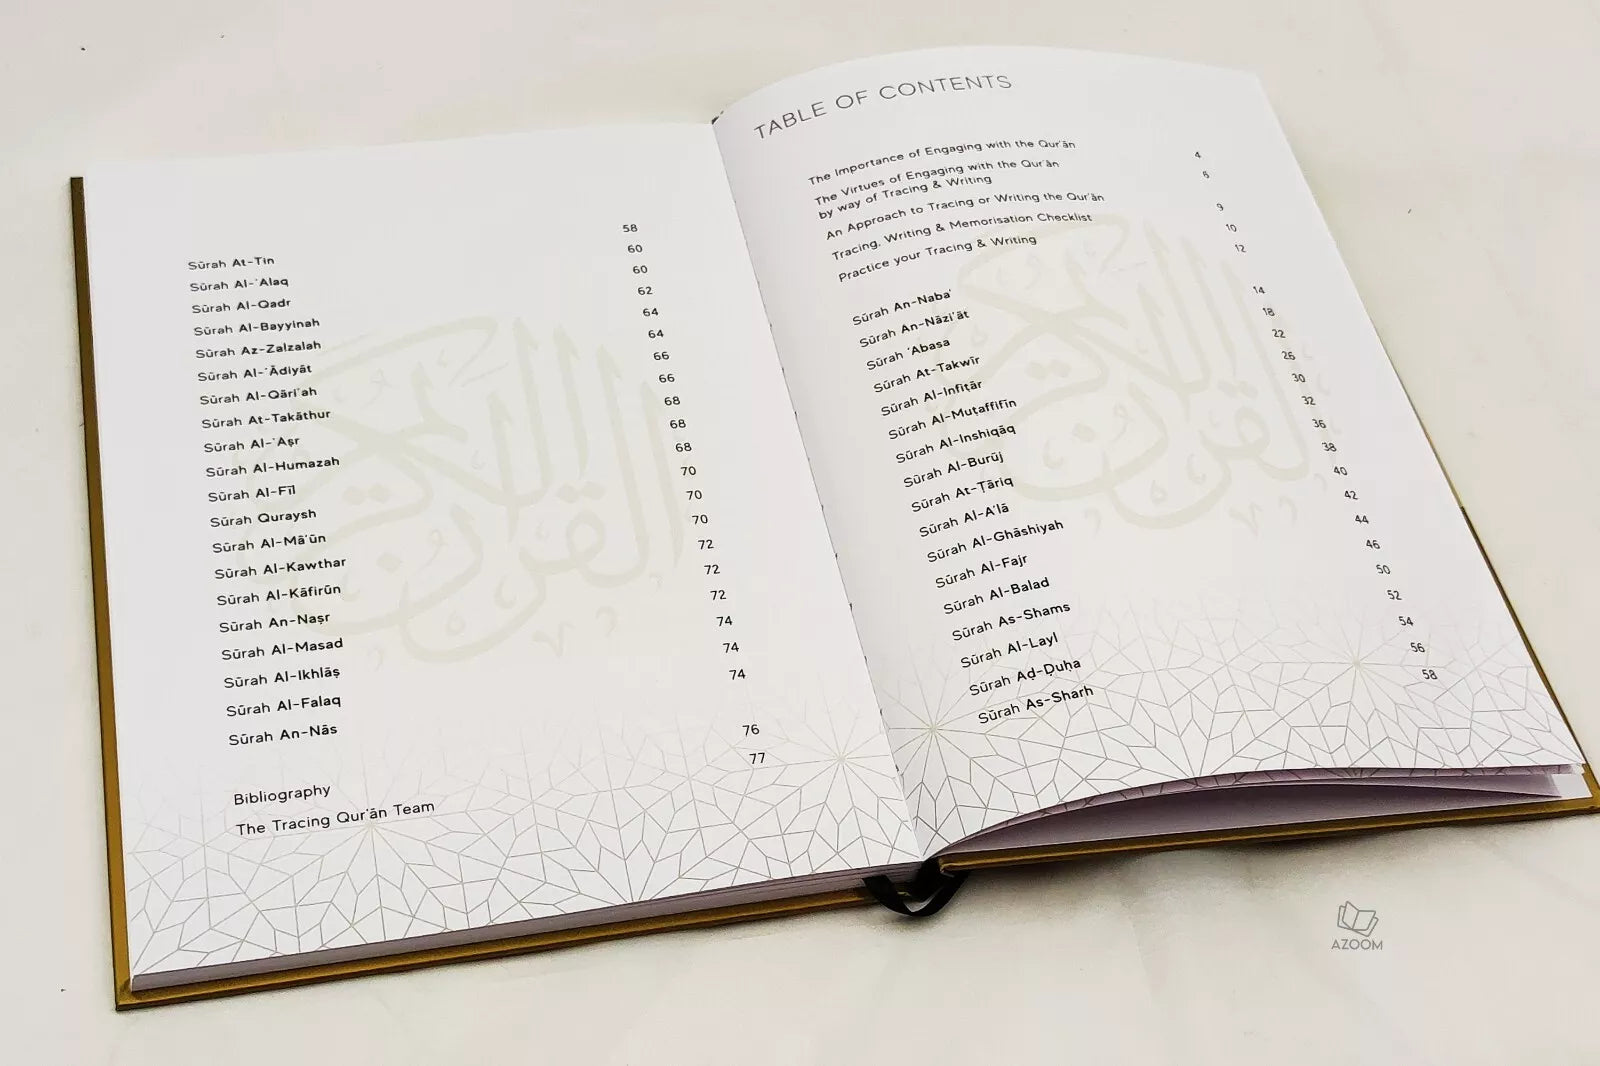 TABLE OF CONTENTS
The Importance of Engaging with the Qur'ān 4
The Virtues of Engaging with the Qur'ān 6
by way of Tracing & Writing
An Approach to Tracing or Writing the Qur'ān 9
Tracing, Writing & Memorisation Checklist 10
Practice your Tracing & Writing 12
Sūrah An-Naba' 14
Sūrah An-Nāzi'āt 18
Sūrah 'Abasa 22
Sūrah At-Takwīr 26
Sūrah Al-Infiṭār 30
Sūrah Al-Muṭaffifīn 32
Sūrah Al-Inshiqāq 36
Sūrah Al-Burūj 38
Sūrah At-Ṭāriq 40
Sūrah Al-A'lā 42
Sūrah Al-Ghāshiyah 44
Sūrah Al-Fajr 46
Sūrah Al-Balad 50
Sūrah As-Shams 52
Sūrah Al-Layl 54
Sūrah Aḍ-Ḍuha 56
Sūrah As-Sharh 58
القرآن الكريم
Sūrah At-Tin 58
Sūrah Al-'Alaq 60
Sūrah Al-Qadr 60
Sūrah Al-Bayyinah 62
Sūrah Az-Zalzalah 64
Sūrah Al-'Ādiyāt 64
Sūrah Al-Qāri'ah 66
Sūrah At-Takāthur 66
Sūrah Al-'Aṣr 68
Sūrah Al-Humazah 68
Sūrah Al-Fīl 68
Sūrah Quraysh 70
Sūrah Al-Mā'ūn 70
Sūrah Al-Kawthar 70
Sūrah Al-Kāfirūn 72
Sūrah An-Naṣr 72
Sūrah Al-Masad 72
Sūrah Al-Ikhlāṣ 74
Sūrah Al-Falaq 74
Sūrah An-Nās 74
Bibliography 76
The Tracing Qur'ān Team 77
القرآن الكريم
AZOOM